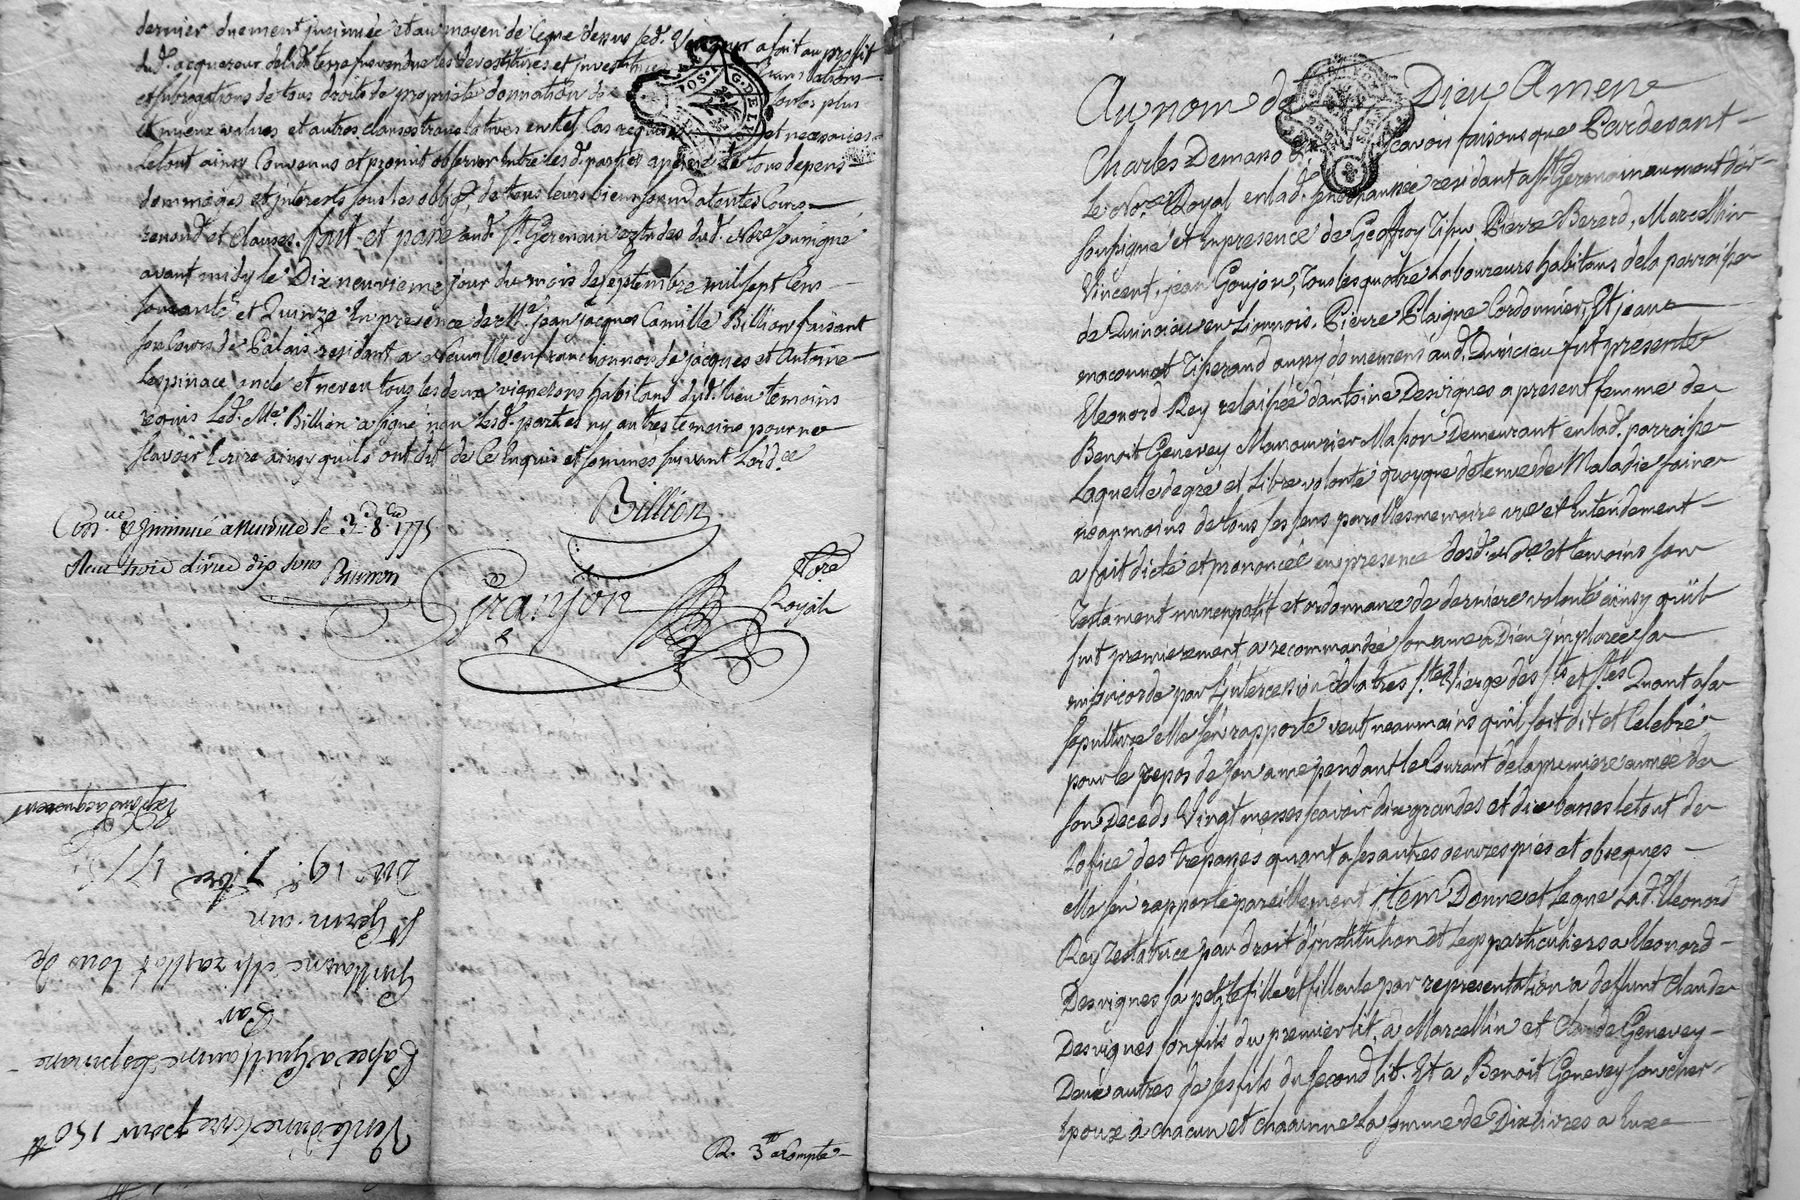 dernier duement insinuée et au moyen de ce que dessus led. Vendeur a fait au proffit
dud. acquereur de lad. terre sus vendue les devestitures et investitures translations
et subrogations de tous droits de propriété domination de toutes plus
et mieux values et autres clauses translatives en tel cas requises et necessaires
le tout ainsy convenus et promit observer entre lesd. parties a peine de tous depens
dommages et interests sous les oblig. de tous leurs biens soumd. a toutes Cours
renond. et clauses. fait et passé aud. St. Germain etudes dud. Nore. soussigné
avant midy le Dix neuvieme jour du mois de septembre mil sept Cens
soixante et Quinze En presence de Me. jean jacques Camille Billion faisant
son Cours de Palais residant a Neuville en franc lionnois de jacques et Antoine
Lespinace oncle et neveu tous les deux vignerons habitans dud. lieu temoins
requis Led. Me. Billion a signé non lesd. parties ny autres temoins pour ne
scavoir Ecrire ainsy quils ont dit de Ce Enquis et sommés suivant Lord.ce
Billion
Con.lle & insinué a Neuville le 3 8bre 1775
Reçu trois livres dix sous
Granjon
Nore.
Royal
R. 3# acompte
Vente d'une terre pour 150#
Passée a Guillaume Lespinace
Par
Guillaume Mirallat tous de
St. Germain
Du 19e. 7bre 1775
Au nom de Dieu Amen
Charles Demano scavoir faisons que Pardevant
Le Nore. Royal en lad. Senechaussée residant a St. Germain au mont d'or
soussigné et en presence de Geoffroy Pierre Bererd, Marcellin
Vincent, jean Goujon, Tous les quatre Laboureurs habitans de la parroisse
de Quincieu en Lionnois. Pierre Plaigne Cordonnier, Et jean
maconnet Tisserand aussy demeurens aud. Quincieu fut presente
Eleonord Rey relaissée d'antoine Desvignes a present femme de
Benoit Genevey Manouvrier Masson Demeurant en lad. parroisse
Laquelle de gré et Libre volonté quoyque detenue de Maladie saine
neanmoins de tous ses sens parolles memoire vue et Entendement
a fait dicté et prononcée en presence desd. Nore. et temoins son
Testament nunenpatif et ordonnance de derniere volonté ainsy qu'il
suit premierement a recommandée son ame a Dieu implorée sa
misericorde par L'intercession de la tres Ste. Vierge des Sts. et Stes. Quant a sa
sepulture elle sen rapporte veut neanmoins quil soit dit et Celebré
pour le repos de son ame pendant le Courant de la premiere année de
son Deceds Vingt messes scavoir dix grandes et dix basses le tout de
Loffice des trepassés quant a ses autres oeuvres piés et obseques
elle sen rapporte pareillement Item Donne et Legue Lad. Eleonord
Rey Testatrice par droit dinstitution et Legs particuliers a Eleonord
Desvignes sa petite fille et filleule par representation a deffunt Claude
Desvignes son fils du premier lit, a Marcellin et Claude Genevey
Deux autres de ses fils du second lit. Et a Benoit Genevey son cher
Epoux à chacun et chacunne La somme de Dix livres a Eux